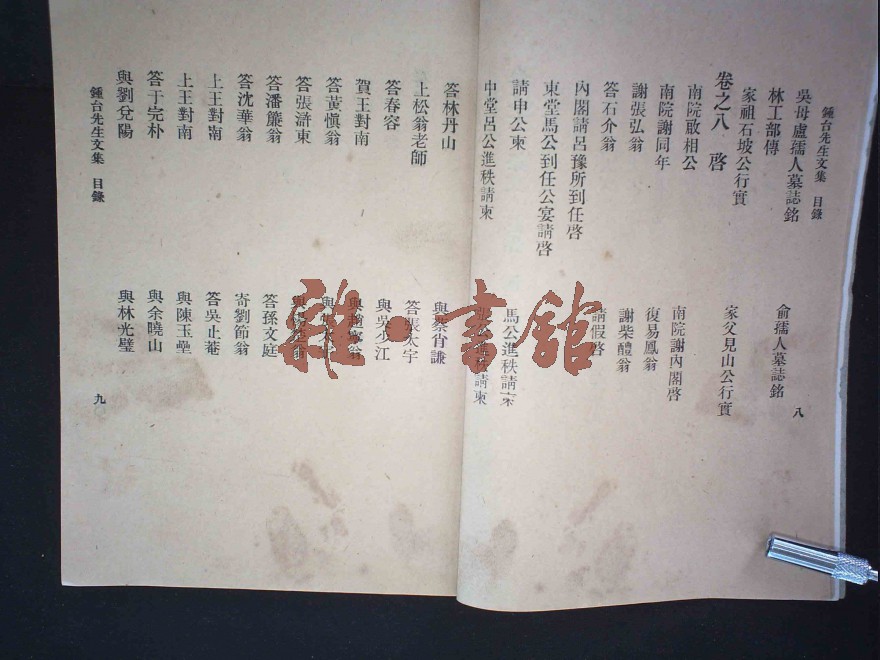 鍾台先生文集 目錄
八
吳母盧孺人墓誌銘
俞孺人墓誌銘
林工部傳
家祖石坡公行實
家父見山公行實
卷之八 啓
南院啟相公
南院謝同年
南院謝內閣啓
謝張弘翁
復易鳳翁
答石介翁
謝柴醴翁
內閣請呂豫所到任啓
請假啓
東堂馬公到任公宴請啓
請申公柬
馬公進秩請柬
中堂呂公進秩請柬
公進秩請柬
答林丹山
與蔡肖謙
上松翁老師
答張太宇
答春容
與吳少江
賀王對南
與趙
翁
答黃慎翁
與
答張滸東
與
翁
答潘簾翁
答孫文庭
答沈華翁
寄劉節翁
上王對南
答吳止菴
上王對南
與陳玉壘
答于完朴
與余曉山
與劉兌陽
與林光璧
鍾台先生文集 目錄
九
雜·書館